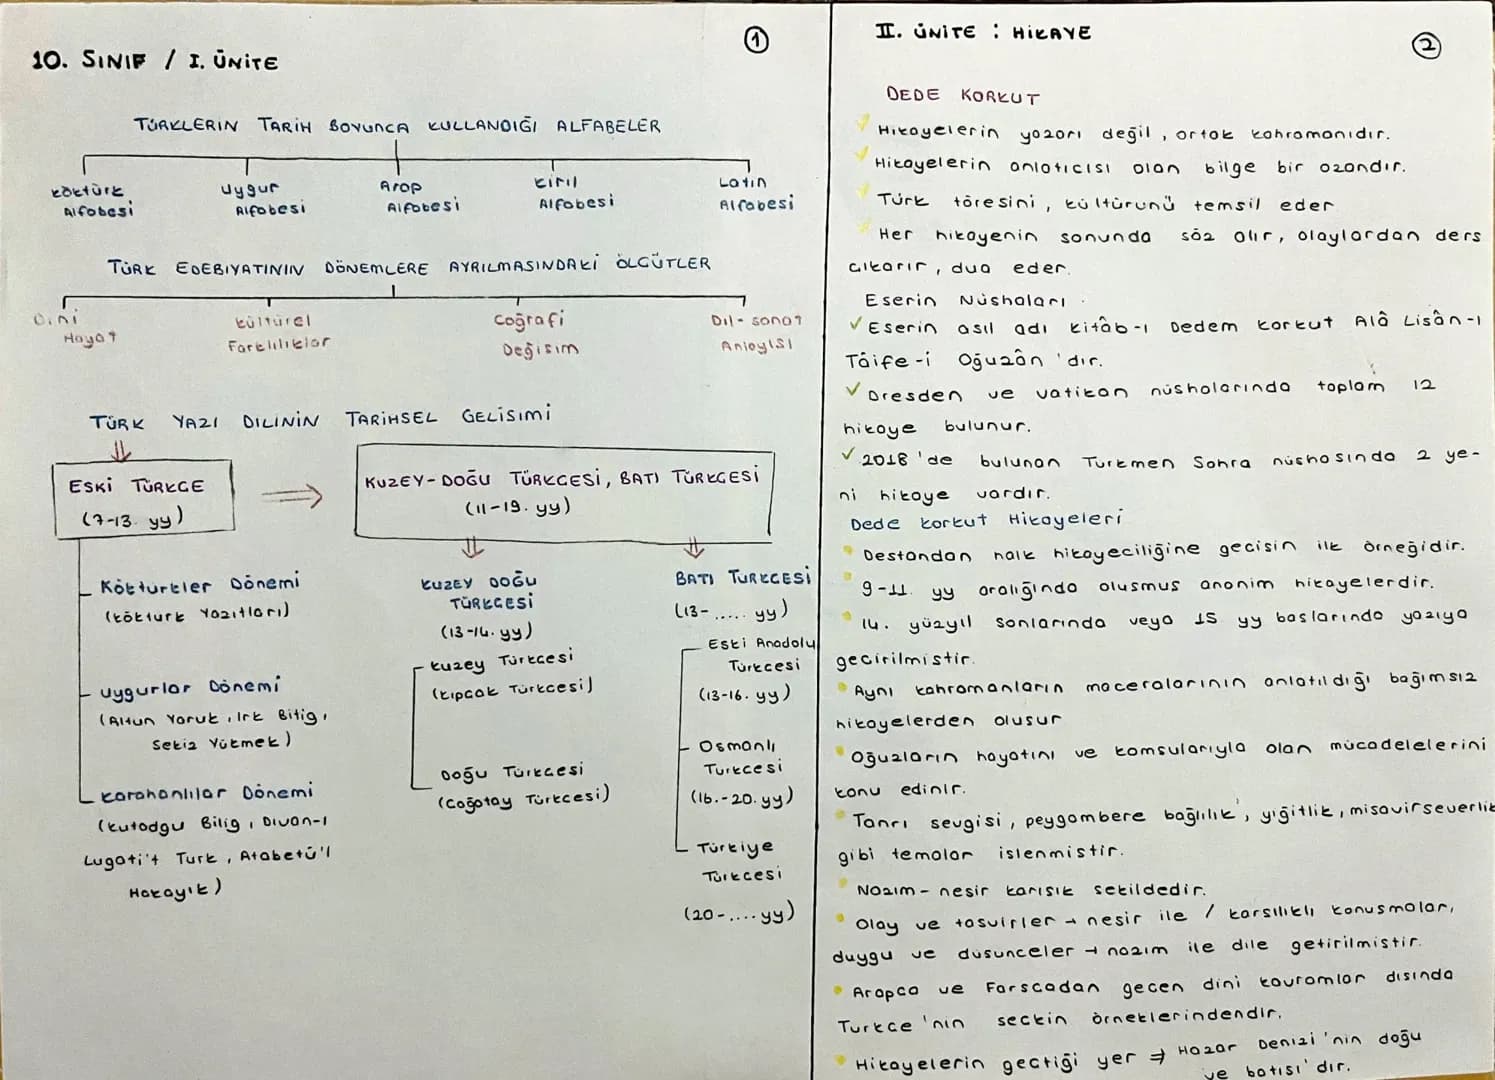 ①
10. SINIF / I. ÜNİTE
TÜRKLERIN TARİH BOYUNCA KULLANDIĞI ALFABELER
Köktürk Alfabesi
Uygur Alfabesi
Arap Alfabesi
Kiril Alfabesi
Latin Alfabesi
TÜRK EDEBIYATININ DÖNEMLERE AYRILMASINDAKİ ÖLÇÜTLER
Dini Hayat
Kültürel Farklılıklar
Coğrafi Değisim
Dil-sanat Anlayısı
TÜRK YAZI DILININ TARIHSEL GELISIMI
ESKİ TÜRKÇE
(7-13. yy)
KUZEY-DOĞU TÜRKÇESİ, BATI TÜRKÇESİ
(11-19. yy)
Köktürkler Dönemi
(Köktürk Yazıtları)
Uygurlar Dönemi
(Altun Yaruk, Irk Bitig,
Sekiz Yükmek)
Karahanlılar Dönemi
(Kutadgu Bilig, Divan-ı
Lugati't Turk, Atabetü'l
Hakayık)
KUZEY DOĞU
TÜRKÇESİ
(13-14. yy)
Kuzey Türkcesi
(Kıpcak Türkcesi)
Doğu Türkcesi
(Cağatay Türkcesi)
BATI TURKCESİ
(13-..... yy)
Eski Anadolu
Türkcesi
(13-16. yy)
Osmanlı
Turkcesi
(16.-20. yy)
Türkiye
Türkcesi
(20-.... yy)
II. ÜNİTE : HİKAYE
②
DEDE KORKUT
Hikayelerin yazarı değil, ortak kahramanıdır.
Hikayelerin anlatıcısı olan bilge bir ozandır.
Türk töresini, kültürünü temsil eder
Her hikayenin sonunda söz alır, olaylardan ders
cıkarır, dua eder.
Eserin Nüshaları
✓ Eserin asıl adı Kitâb-ı Dedem Korkut Alâ Lisân-ı
Tâife-i Oğuzân 'dır.
✓ Dresden ve Vatikan nüshalarında toplam 12
hikaye bulunur.
✓ 2018 'de bulunan Turkmen Sahra nüshasında 2 ye-
ni hikaye vardır.
Dede Korkut Hikayeleri
• Destandan halk hikayeciliğine gecisin ilk örneğidir.
• 9-11. yy aralığında olusmus anonim hikayelerdir.
• 14. yüzyıl sonlarında veya 15 yy baslarında yazıya
gecirilmistir.
• Aynı kahramanların maceralarının anlatıldığı bağımsız
hikayelerden olusur
• Oğuzların hayatını ve komsularıyla olan mücadelelerini
konu edinir.
• Tanrı sevgisi, peygambere bağlılık, yiğitlik, misavirseverlik
gibi temalar islenmistir.
• Nazım-nesir karısık sekildedir.
• Olay ve tasvirler → nesir ile / karsılıklı konusmalar,
duygu ve düsünceler → nazım ile dile getirilmistir.
• Arapca ve Farscadan gecen dini kavramlar dısında
Turkce 'nin seckin örneklerindendir.
• Hikayelerin gectiği yer ⇒ Hazar Denizi'nin doğu
ve batısı'dır.